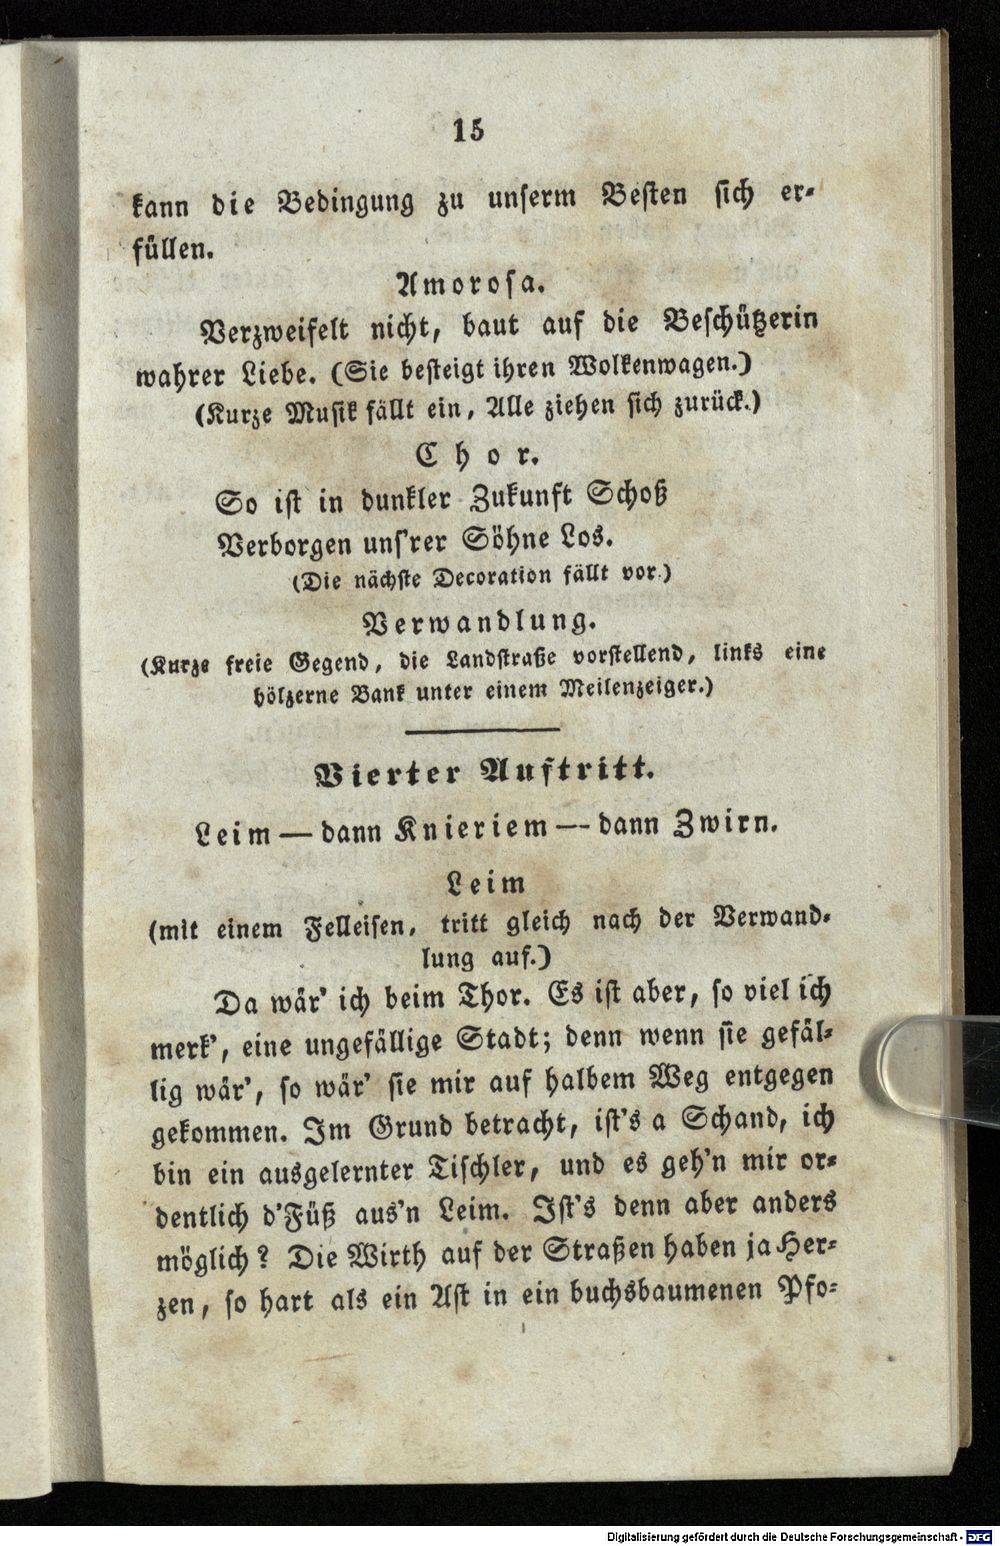 15
kann die Bedingung zu unserm Besten sich er-
füllen.
Amorosa.
Verzweifelt nicht, baut auf die Beschützerin
wahrer Liebe. (Sie besteigt ihren Wolkenwagen.)
(Kurze Musik fällt ein, Alle ziehen sich zurück.)
Chor.
So ist in dunkler Zukunft Schoß
Verborgen uns'rer Söhne Los.
(Die nächste Decoration fällt vor.)
Verwandlung.
(Kurze freie Gegend, die Landstraße vorstellend, links eine
hölzerne Bank unter einem Meilenzeiger.)
Vierter Auftritt.
Leim — dann Knieriem — dann Zwirn.
Leim
(mit einem Felleisen, tritt gleich nach der Verwand-
lung auf.)
Da wär' ich beim Thor. Es ist aber, so viel ich
merk', eine ungefällige Stadt; denn wenn sie gefäl-
lig wär', so wär' sie mir auf halbem Weg entgegen
gekommen. Im Grund betracht, ist's a Schand, ich
bin ein ausgelernter Tischler, und es geh'n mir or-
dentlich d'Füß aus'n Leim. Ist's denn aber anders
möglich? Die Wirth auf der Straßen haben ja Her-
zen, so hart als ein Ast in ein buchsbaumenen Pfo-
Digitalisierung gefördert durch die Deutsche Forschungsgemeinschaft - DFG